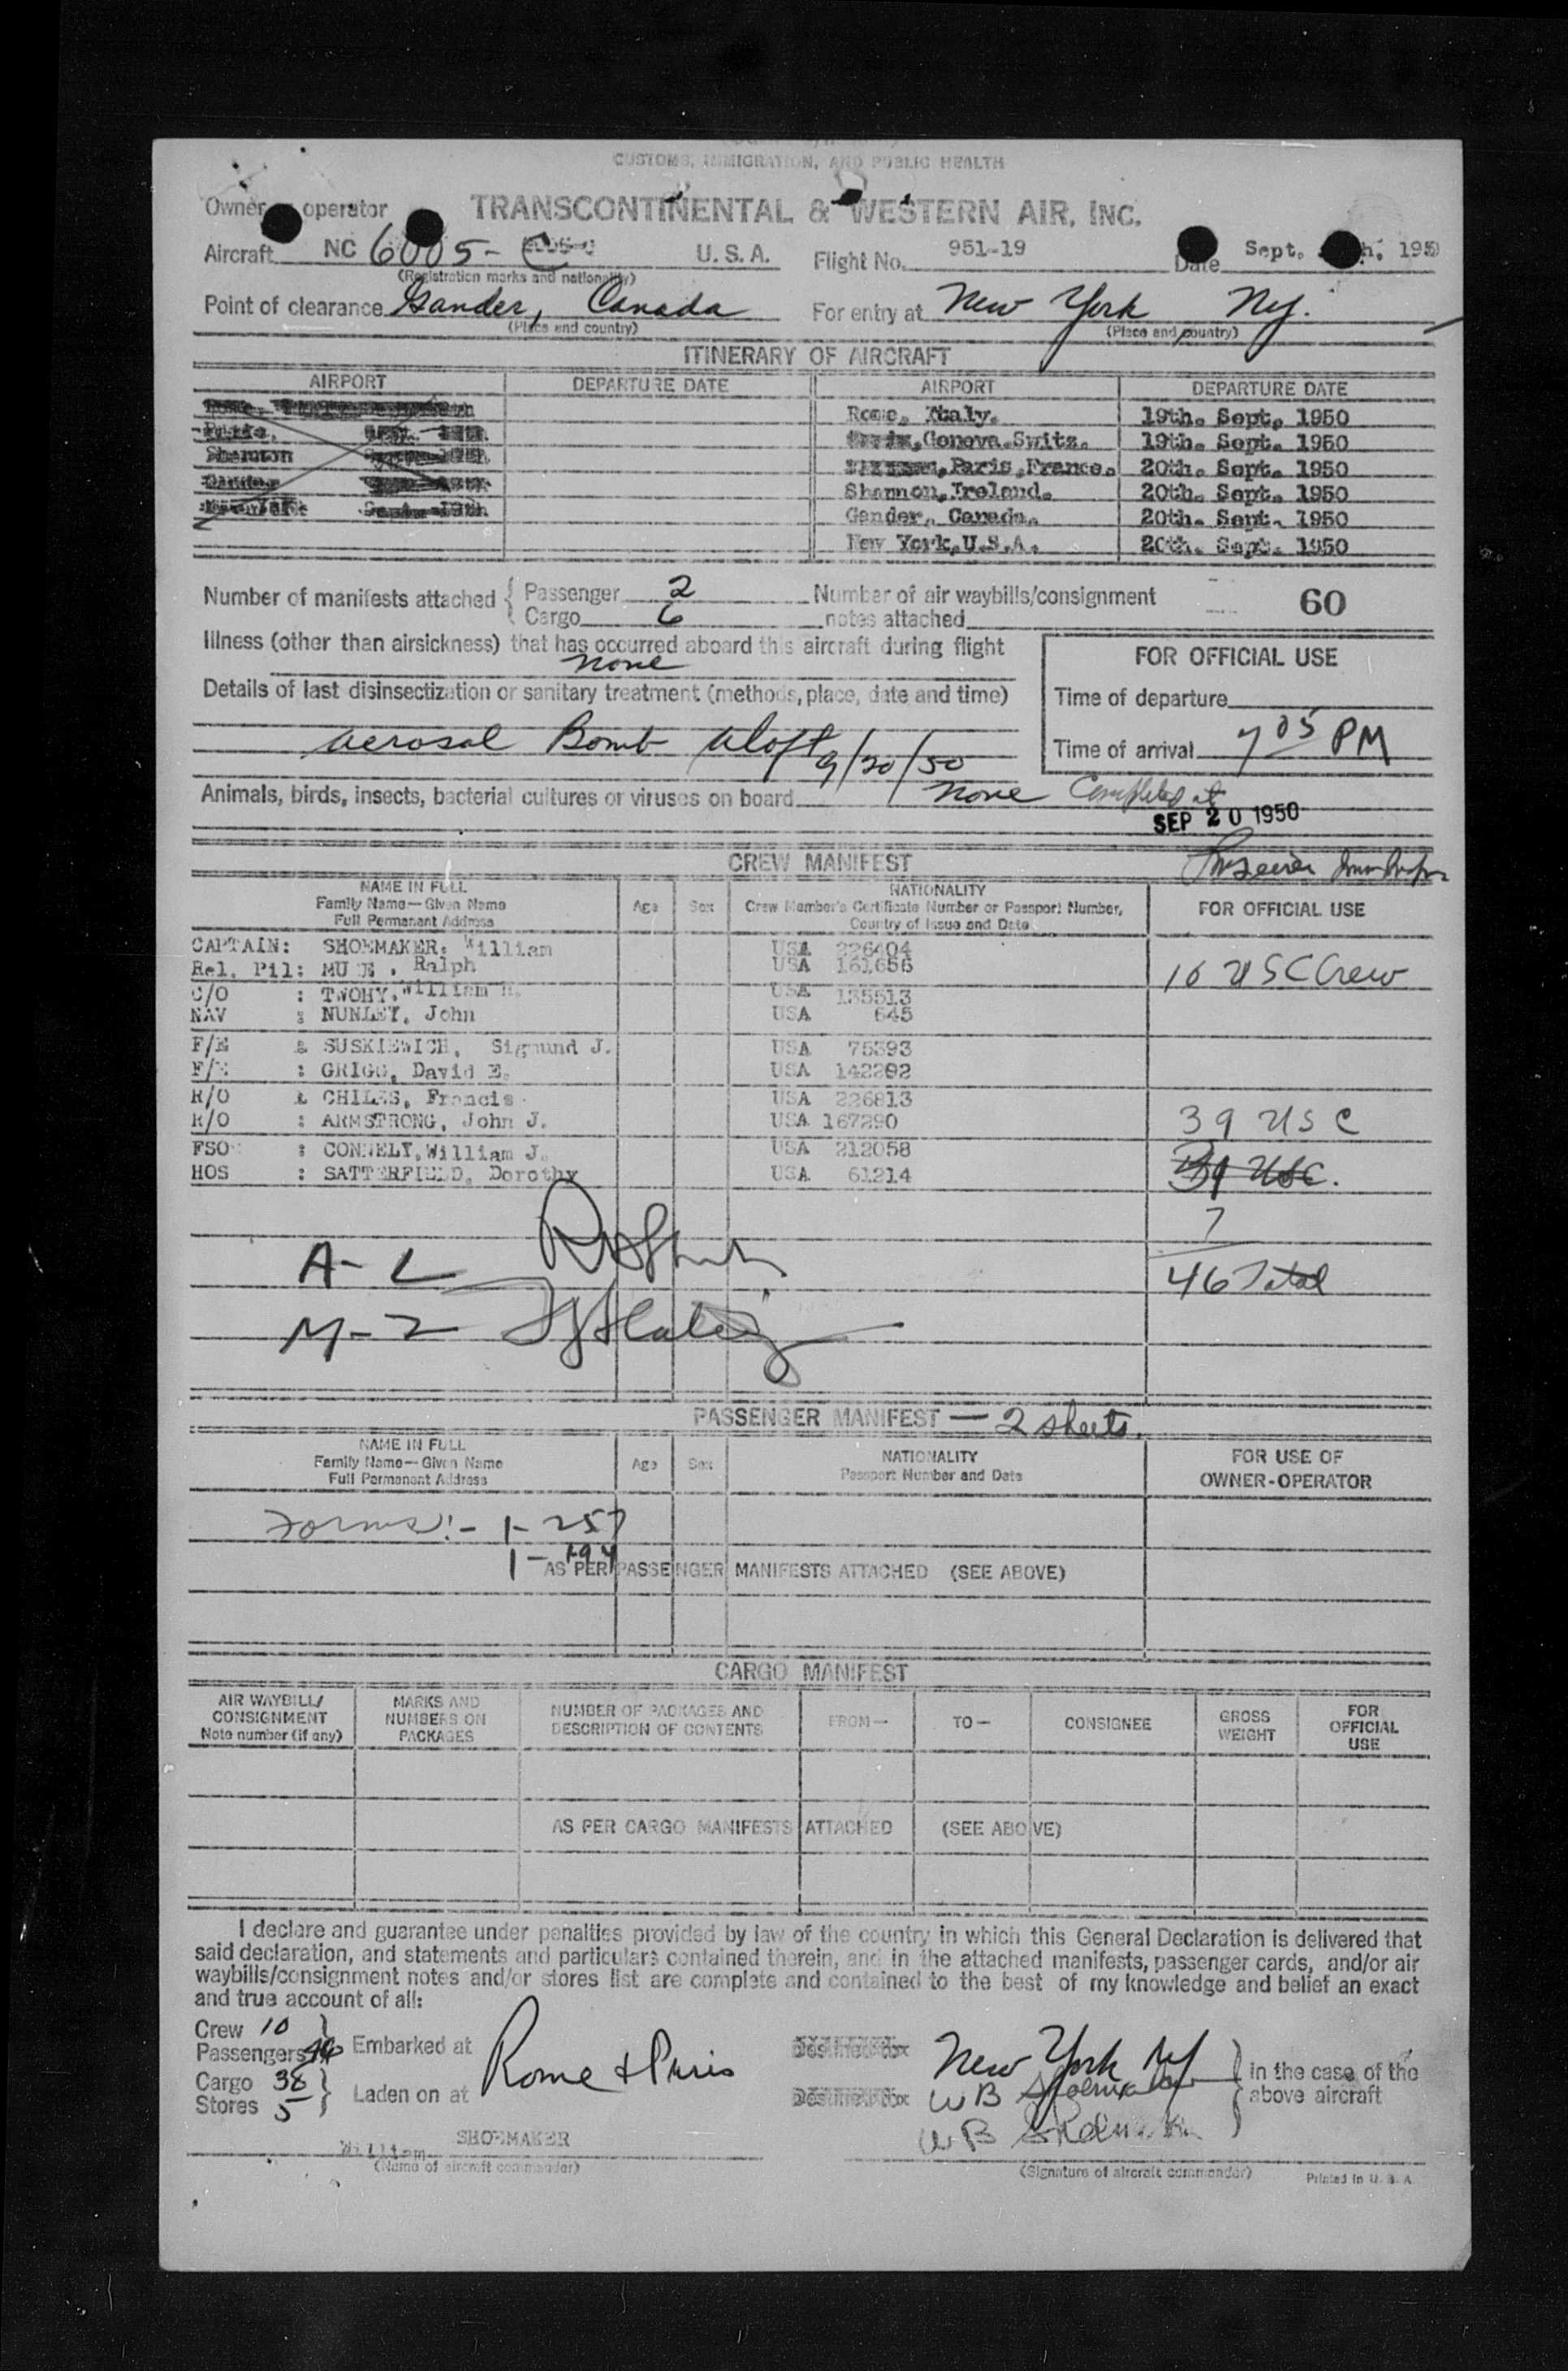 CUSTOMS, IMMIGRATION, AND PUBLIC HEALTH
Owner operator TRANSCONTINENTAL & WESTERN AIR, INC.
Aircraft NC 6005-C U.S.A. Flight No. 951-19 Date Sept. h. 1950
(Registration marks and nationality)
Point of clearance Gander, Canada For entry at New York NY.
(Place and country) (Place and country)
ITINERARY OF AIRCRAFT
AIRPORT DEPARTURE DATE AIRPORT DEPARTURE DATE
Rome, Italy. 19th. Sept. 1950
Geneva.Switz. 19th. Sept. 1950
Shannon Paris,France. 20th. Sept. 1950
Shannon,Ireland. 20th. Sept. 1950
Gander, Canada. 20th. Sept. 1950
New York,U.S.A. 20th. Sept. 1950
Number of manifests attached { Passenger 2 Number of air waybills/consignment 60
Cargo 6 notes attached
Illness (other than airsickness) that has occurred aboard this aircraft during flight
none
FOR OFFICIAL USE
Details of last disinsectization or sanitary treatment (methods, place, date and time)
Time of departure
Aerosol Bomb Aloft 9/20/50
Time of arrival 7 05 PM
Animals, birds, insects, bacterial cultures or viruses on board none Completed at
SEP 20 1950
CREW MANIFEST
NAME IN FULL
Family Name—Given Name
Full Permanent Address
Age Sex
NATIONALITY
Crew Member's Certificate Number or Passport Number,
Country of Issue and Date
FOR OFFICIAL USE
CAPTAIN: SHOEMAKER, William USA 226404
Rel. Pil: , Ralph USA 161656 10 USC Crew
C/O : TWOHY, William H. USA 135513
NAV : NUNLEY, John USA 645
F/E & SUSKIEWICH, Sigmund J. USA 75393
F/E : GRIGG, David E. USA 142292
R/O & CHILES, Francis USA 226813
R/O : ARMSTRONG, John J. USA 167290 39 USC
FSO : CONNELY,William J. USA 212058
HOS : SATTERFIELD, Dorothy USA 61214 39 USC.
7
A-L
46 Total
M-2
PASSENGER MANIFEST — 2 sheets.
NAME IN FULL
Family Name—Given Name
Full Permanent Address
Age Sex
NATIONALITY
Passport Number and Date
FOR USE OF
OWNER-OPERATOR
Forms:- 1-257
1-I-94
AS PER PASSENGER MANIFESTS ATTACHED (SEE ABOVE)
CARGO MANIFEST
AIR WAYBILL/
CONSIGNMENT
Note number (if any)
MARKS AND
NUMBERS ON
PACKAGES
NUMBER OF PACKAGES AND
DESCRIPTION OF CONTENTS
FROM—
TO—
CONSIGNEE
GROSS
WEIGHT
FOR
OFFICIAL
USE
AS PER CARGO MANIFESTS ATTACHED (SEE ABOVE)
I declare and guarantee under penalties provided by law of the country in which this General Declaration is delivered that
said declaration, and statements and particulars contained therein, and in the attached manifests, passenger cards, and/or air
waybills/consignment notes and/or stores list are complete and contained to the best of my knowledge and belief an exact
and true account of all:
Crew 10
Passengers 46 Embarked at Rome & Paris Destined for New York NY in the case of the
Cargo 38
Stores 5 Laden on at Destined for WB Shoemaker above aircraft
WB Shoemaker
William SHOEMAKER
(Name of aircraft commander) (Signature of aircraft commander) Printed in U. S. A.